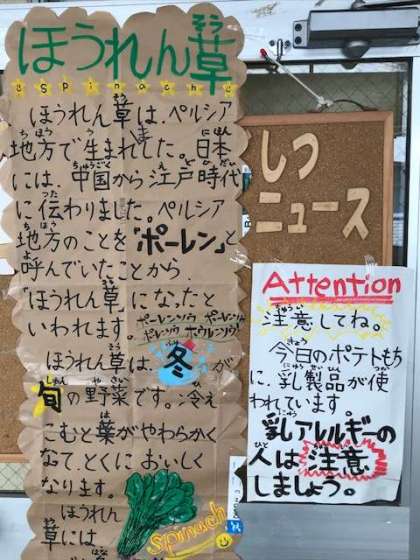 ほうれん草
Spinach
ほうれん草は、ペルシア
地方で生まれました。日本
には、中国から江戸時代
に伝わりました。ペルシア
地方のことを「ポーレン」と
呼んでいたことから、
「ほうれん草」になったと
いわれます。
ポーレンソウ ポーレンソウ
ポレンソウ ホウレンソウ!
ほうれん草は、冬が
旬の野菜です。冷え
こむと葉がやわらかく
なて、とくにおいしく
なります。
ほうれん
草には
Spinach
しつ
ニュース
Attention
注意してね。
今日のポテトもち
に、乳製品が使
われています。
乳アレルギーの
人は注意
しましょう。